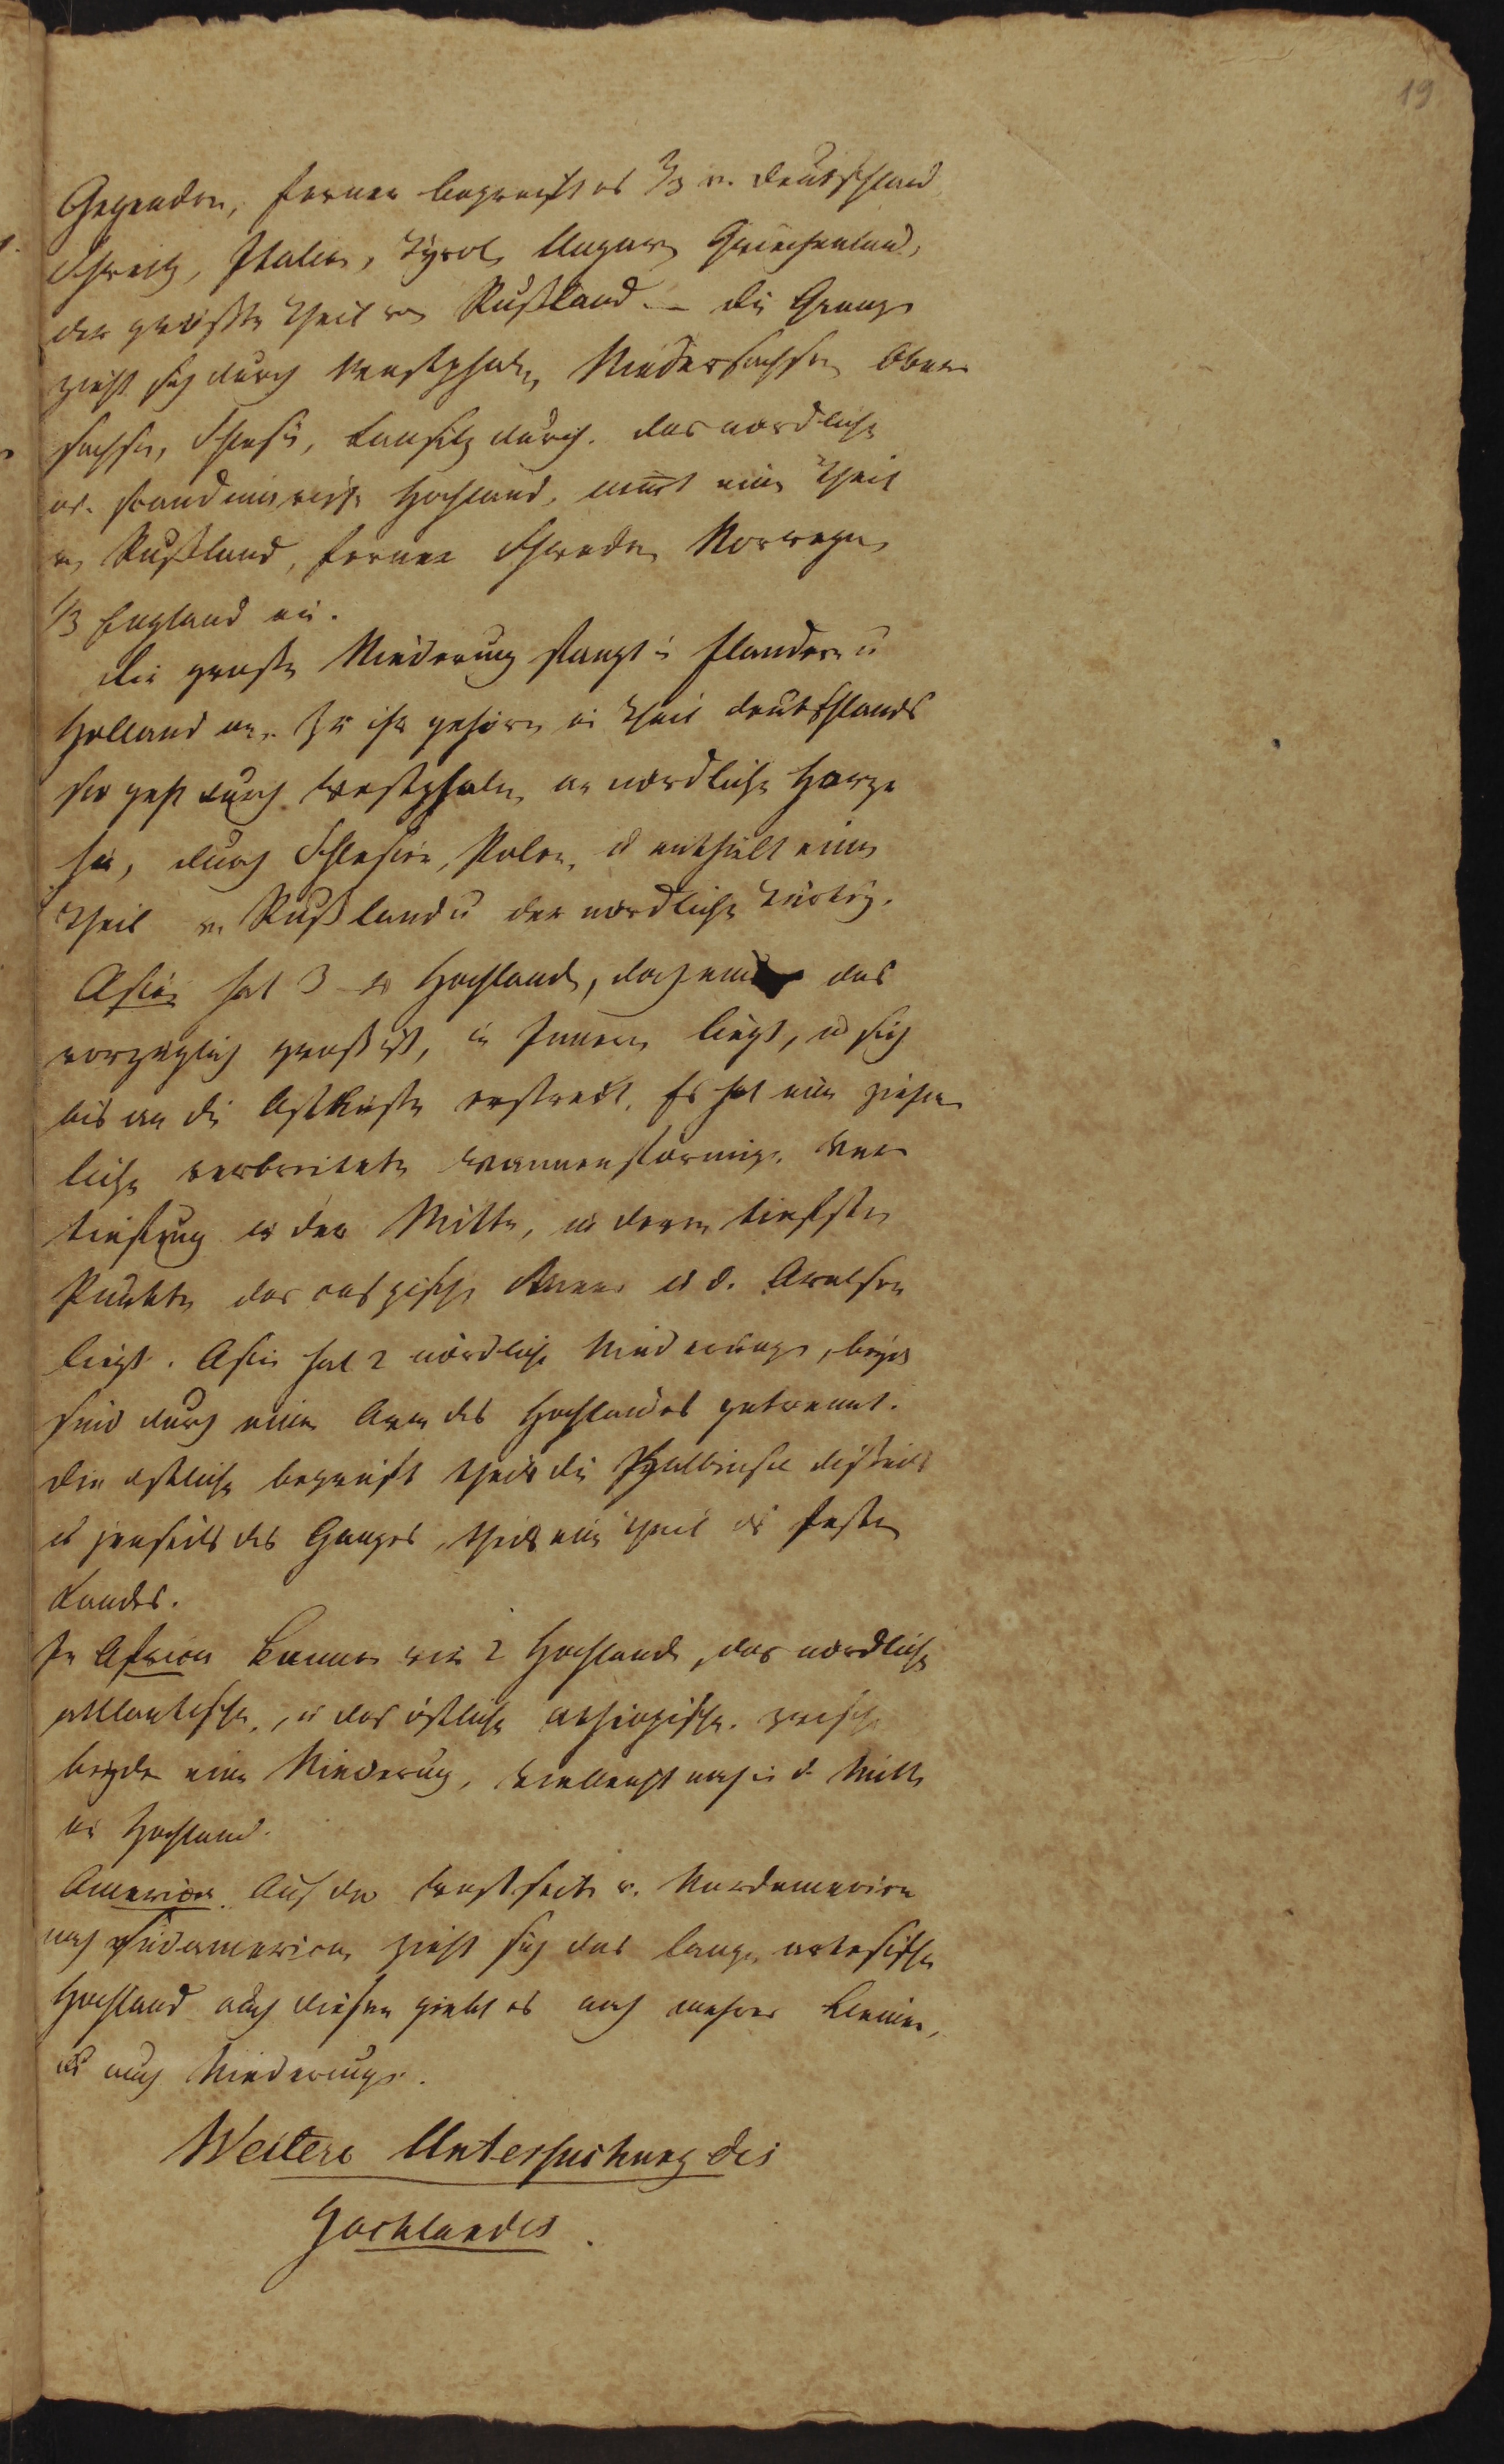 19
Gegenden, ferner begreift es 2/3 v. Deutschland
Schweitz, Italien, Tyrol, Ungarn, Griechenland,
der größte Theil von Rußland. – Die Grenze
zieht sich durch Westphalen, Niedersachsen, Ober
sachsen, Schlesi, Lausitz durch. das nordliche
od. skandinavische Hochland, nimt einen Theil
v. Rußland, ferner Schweden, Norwegen,
1/3 England ein.
Die große Niederung fängt in Flandern u
Holland an. Zu ihr gehören ein Theil Deutschlands
sie geht durch Westphalen, am nordlichen Harze
hin, durch Schlesien, Polen, u enthält einen
Theil v. Rußland u der nordlichen Türkey.
Asien hat 3 Hochlande, doch eins das
vorzüglich groß ist, im Innern liegt, u sich
bis an die Ostküste erstreckt. Es hat eine ziehm
liche verbreitete wannenförmige Ver
tiefung in der Mitte, in deren tiefsten
Punkten das caspische Meer u d. Aralsee
liegt. Asien hat 2 nördliche Niederungen, beyde
sind durch einen Arm des Hochlandes getrennt.
Die östliche begreift theils die Halbinsel disseits
u jenseits des Ganges, theils ein Theil des festen
Landes.
In Africa kennen wir 2 Hochlande, das nordliche
atlantische, u das östliche aethiopische. zwischen
beyden eine Niederung, vielleicht noch in d. Mitte
ein Hochland.
America. Auf der Westseite v. Nordamerica
nach Südamerica, zieht sich das lange
Hochland auch diesem giebt es noch mehrere kleine,
u auch Niederungen.
Weitere Untersuchung des
Hochlandes.